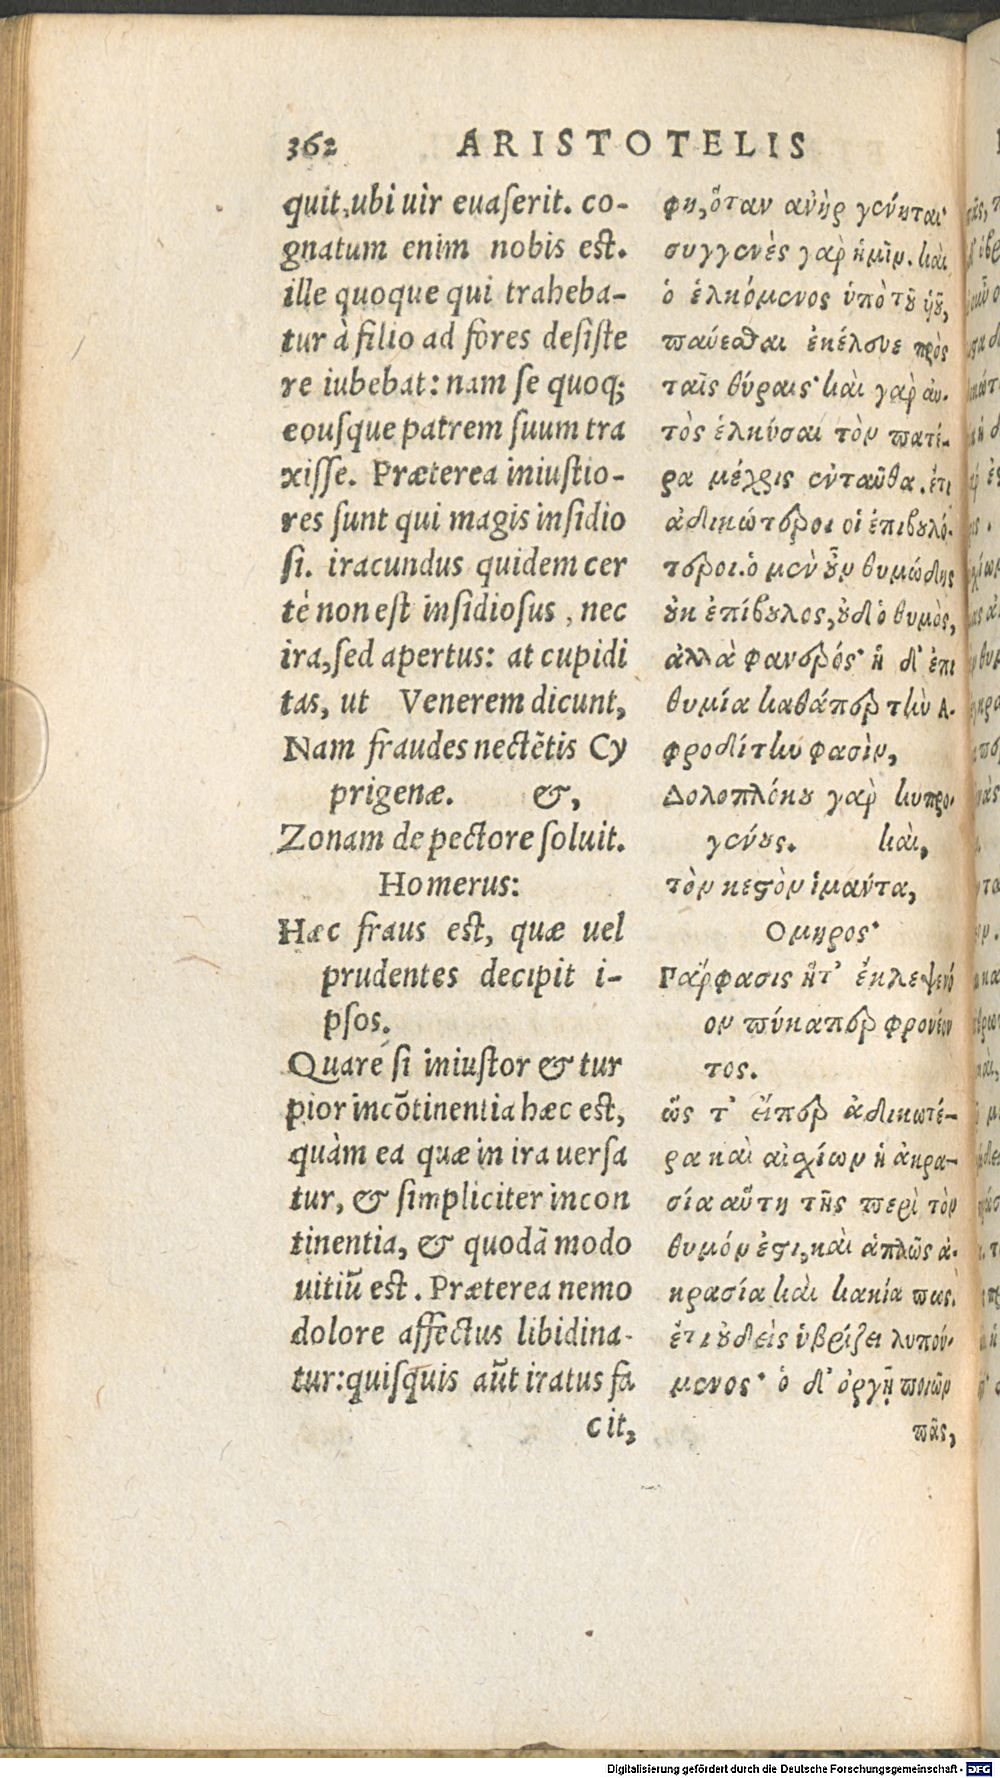 362 ARISTOTELIS
quit, ubi uir euaſerit. co-
gnatum enim nobis est.
ille quoque qui traheba-
tur à filio ad fores deſiſte
re iubebat: nam ſe quoq;
eousque patrem ſuum tra
xiſſe. Præterea iniuſtio-
res ſunt qui magis inſidio
ſi. iracundus quidem cer
tè non eſt inſidioſus, nec
ira, ſed apertus: at cupidi
tas, ut Venerem dicunt,
Nam fraudes nectẽtis Cy
prigenæ. &,
Zonam de pectore ſoluit.
Homerus:
Hæc fraus eſt, quæ uel
prudentes decipit i-
pſos.
Quare ſi iniuſtor & tur
pior incõtinentia hæc eſt,
quàm ea quæ in ira uerſa
tur, & ſimpliciter incon
tinentia, & quodã modo
uitiũ eſt. Præterea nemo
dolore affectus libidina-
tur: quiſquis aũt iratus fa
cit,
φη, ὅταν ἀνὴρ γένηται·
συγγενὲς γὰρ ἡμῖν. καὶ
ὁ ἑλκόμενος ὑπὸ τοῦ ὑοῦ,
παύεσθαι ἐκέλευε πρὸς
ταῖς θύραις· καὶ γὰρ αὐ-
τὸς ἑλκύσαι τὸν πατέ-
ρα μέχρις ἐνταῦθα. ἔτι
ἀδικώτεροι οἱ ἐπιβουλό-
τεροι. ὁ μὲν οὖν θυμώδης
οὐκ ἐπίβουλος, οὐδ' ὁ θυμὸς,
ἀλλὰ φανερός· ἡ δ' ἐπι
θυμία καθάπερ τὴν Α-
φροδίτην φασὶν,
Δολοπλόκου γὰρ κυπρο-
γενοῦς. καὶ,
τὸν κεστὸν ἱμάντα,
Ομηρος·
Πάρφασις ἥτ' ἔκλεψε νό
ον πύκαπερ φρονέον
τος.
ὥς τ' εἴπερ ἀδικωτέ-
ρα καὶ αἰσχίων ἡ ἀκρα-
σία αὕτη τῆς περὶ τὸν
θυμόν ἐστι, καὶ ἁπλῶς ἀ-
κρασία καὶ κακία πως.
ἔτι οὐδεὶς ὑβρίζει λυπού-
μενος· ὁ δ' ὀργῇ ποιῶν
πᾶς,
Digitalisierung gefördert durch die Deutsche Forschungsgemeinschaft - DFG